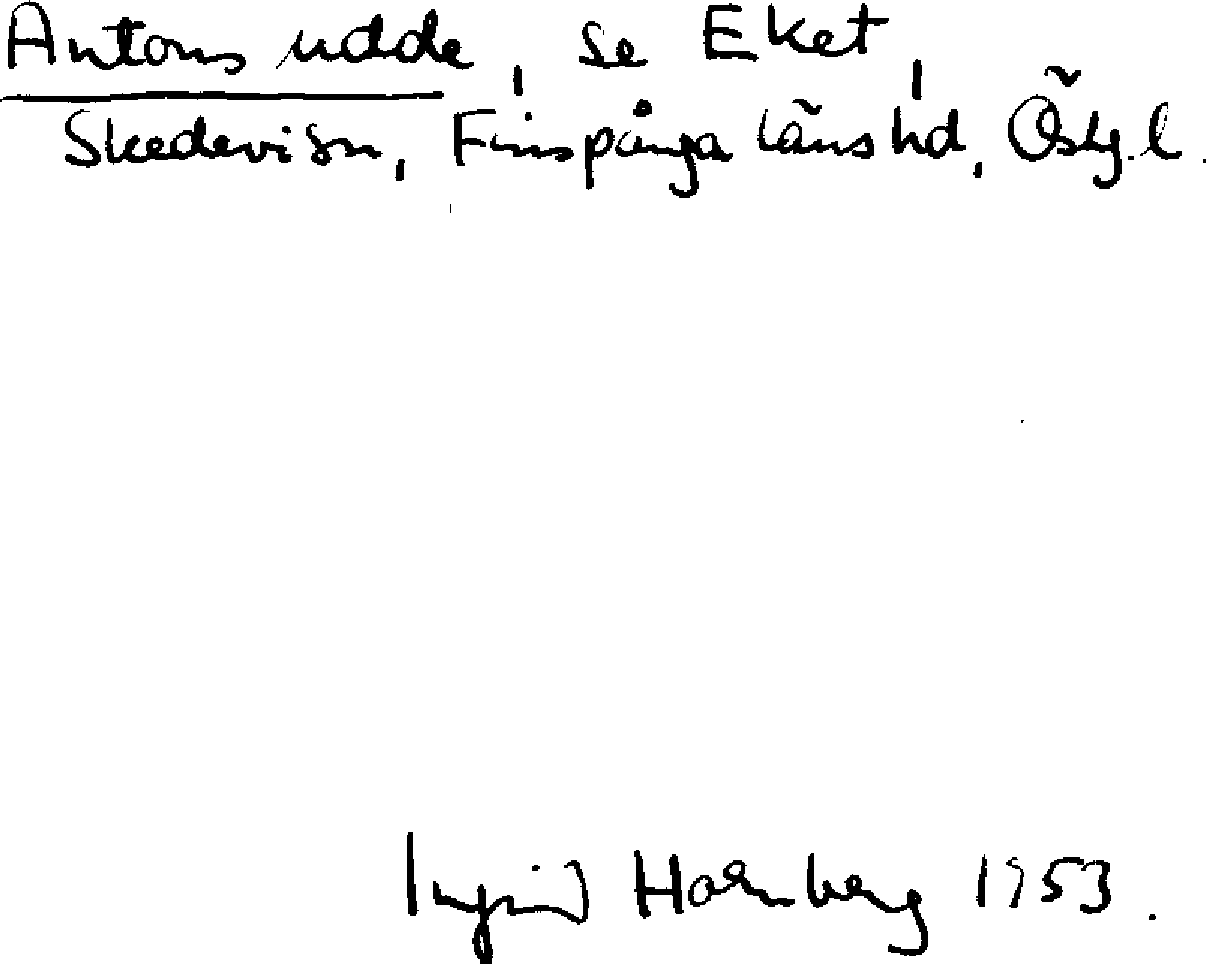 Antons udde, se Eket,
Skedevi sn, Finspånga läns hd, Östg.l.
Ingrid Hornberg 1953.